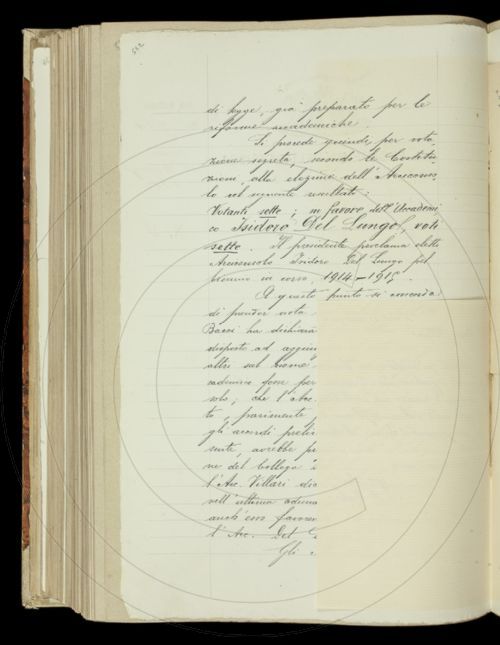 di legge, già preparato per le
riforme accademiche.
Si procede quindi, per vota
zione segreta, secondo le Costitu
zioni alla elezione dell'Arciconso
lo col seguente resultato:
Votanti sette; in favore dell'Accademi
co Isidoro Del Lungo, voti
sette. Il presidente proclama eletto
Arciconsolo Isidoro Del Lungo pel
biennio in corso, 1914-1915.
A questo punto si
di prender nota
Bacci ha dichiara
disposto ad
altri sul nome
cademico fosse per
solo; che l'Acc.
to, parimente
gli accordi preli
avrebbe
ne del collega
l'Acc. Villari
nell'ultima aduna
anch'esso favore
l'Acc. Del
Gli